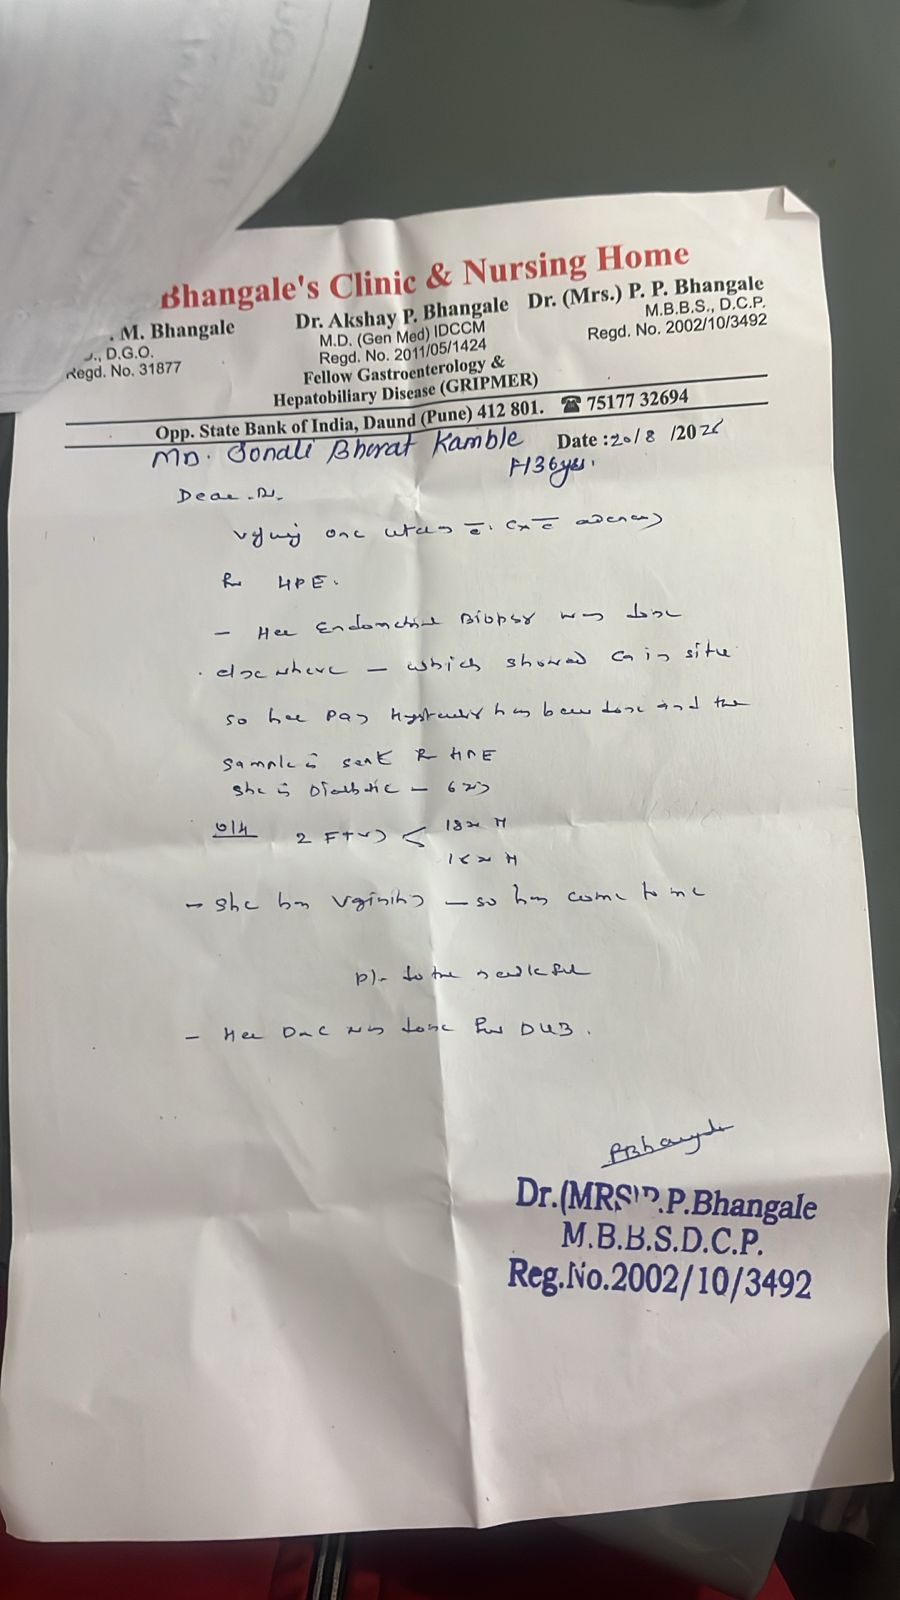 Bhangale's Clinic & Nursing Home
. M. Bhangale
., D.G.O.
Regd. No. 31877
Dr. Akshay P. Bhangale
M.D. (Gen Med) IDCCM
Regd. No. 2011/05/1424
Fellow Gastroenterology &
Hepatobiliary Disease (GRIPMER)
Dr. (Mrs.) P. P. Bhangale
M.B.B.S., D.C.P.
Regd. No. 2002/10/3492
Opp. State Bank of India, Daund (Pune) 412 801. ☎ 75177 32694
Sonali Bharat Kamble Date : 20/8 /20
F/36yrs.
Dear Dr.
one uterus c̄ Cx c̄
HPE.
- Her Biopsy was done
elsewhere - which showed Ca in situ
so her Pan has been done and the
sample is sent for HPE
She is Diabetic -
O/H 2 FTND <
- She has - so has come to me
Pl. do the needful
- Her DnC was done for DUB.
PBhangale
Dr.(MRS) P.P.Bhangale
M.B.B.S.D.C.P.
Reg.No.2002/10/3492